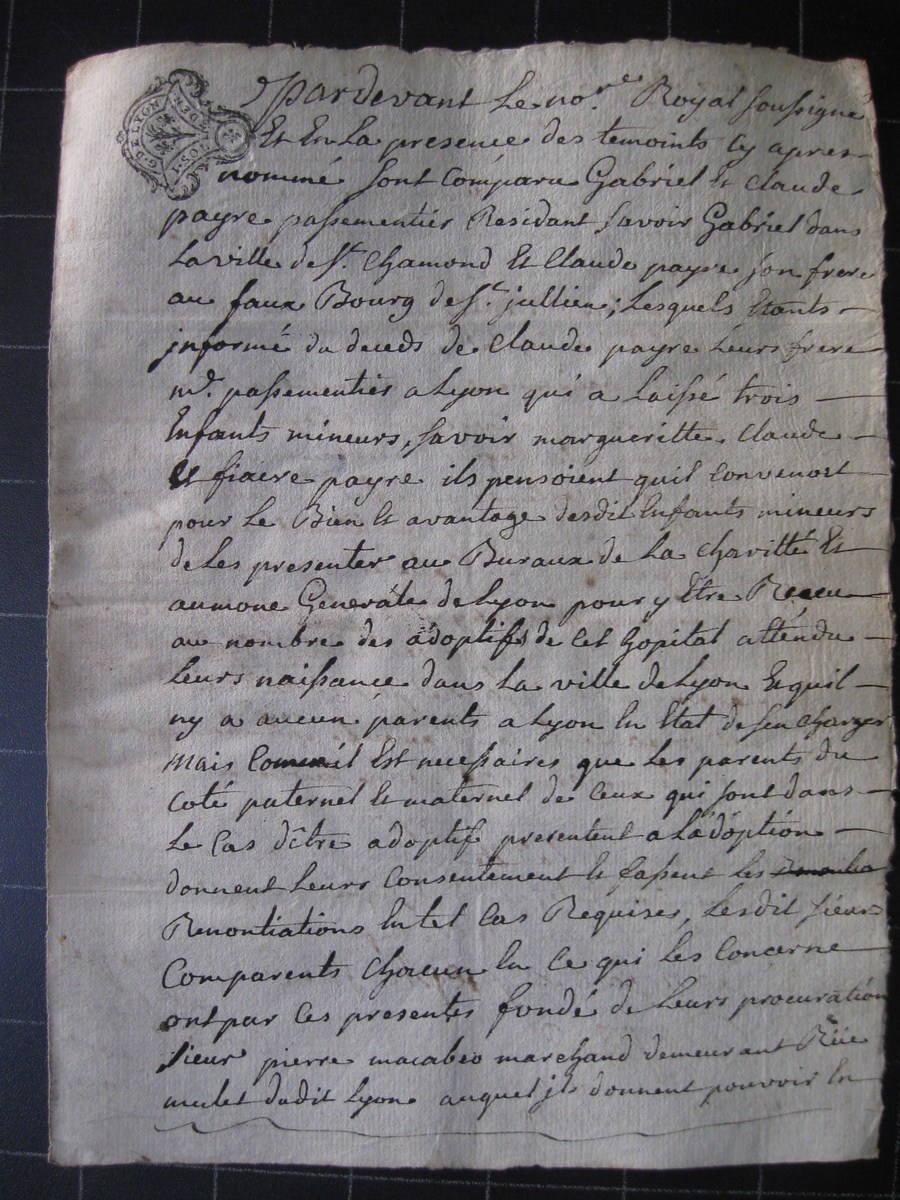 G. DE LYON
DEN
pardevant le no.re Royal soussigné
Et En La presence des temoints cy apres
nommé sont Comparu Gabriel Et Claude
payre passementiers Residant savoir Gabriel dans
La ville de St. Chamond Et Claude payre son frere
au faux Bourg de St. jullien; Lesquels Etants
jnformé du deceds de Claude payre Leurs frere
md. passementier a Lyon qui a Laissé trois
Enfants mineurs, savoir margueritte, Claude
Et payre ils pensoient quil Convenoit
pour Le Bien Et avantage desdit Enfants mineurs
de Les presenter au Buraux de La Charitté Et
aumone Generalle de Lyon pour y Etre Receu
au nombre des adoptifs de Cet hopital attendu
Leurs naissance dans La ville de Lyon Et quil
ny a aucun parents a Lyon En Etat de sen charger
mais Comme il Est necessaires que Les parents du
Coté paternel Et maternel de Ceux qui sont dans
Le Cas dêtre adoptifs presentent a Ladoption
donnent Leurs Consentement Et fassent Les
Renontiations En tel Cas Requises, Lesdit sieurs
Comparents Chacun En Ce qui Les Concerne
ont par Ces presentes fondé de Leurs procuration
sieur pierre macabeo marchand demeurant Rüe
mulet dudit Lyon auquel jls donnent pouvoir En